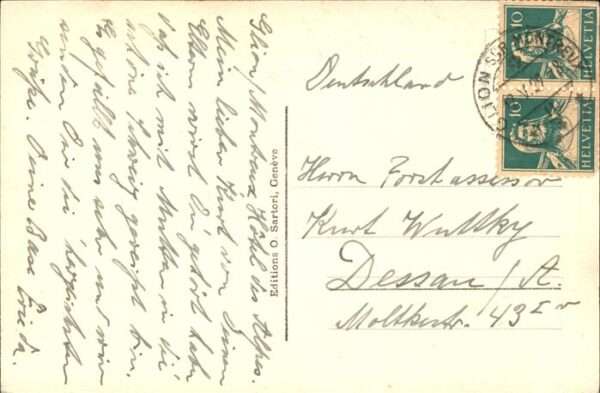 Glion/Montreux Hôtel des Alpes.
Mein lieber Kurt von Deinen
Eltern wirst Du gehört haben
daß ich mit Mutter in die
schöne Schweiz gereist bin.
Es gefällt uns sehr und wir
senden Dir die herzlichsten
Grüße. Deine Base Frieda.
Editions O. Sartori, Genève
Deutschland
Herrn Forstassessor
Kurt Wuttky
Dessau/A.
Moltkestr. 43 I r
10
HELVETIA
10
HELVETIA
GLION SUR MONTREUX